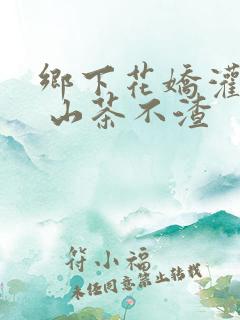 鄉下花嬌灌
山茶不渣
符小福
未经同意禁止转载